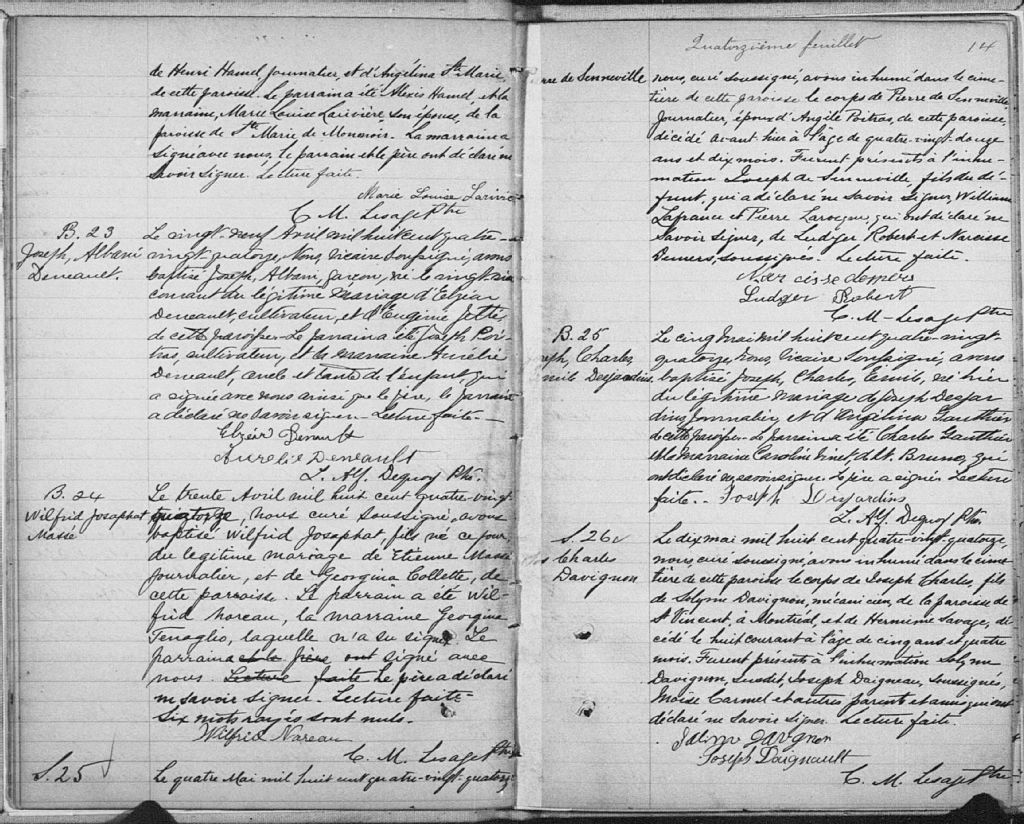 de Henri Hamel, Journalier, et d'Angélina Ste Marie
de cette paroisse. Le parrain a été Alexis Hamel, et la
marraine, Marie Louise Larivière, son épouse, de la
paroisse de Ste Marie de Monnoir. La marraine a
signé avec nous. Le parrain et le père ont déclaré ne
savoir signer. Lecture faite.
Marie Louise Larivié
C. M. Lesage Ptre
B. 23
Joseph, Albani
Deneault.
Le vingt-neuf Avril mil huit cent quatre-
vingt-quatorze, Nous, Vicaire Soussigné, avons
baptisé Joseph, Albani, garçon, né le vingt-six
courant du légitime mariage d'Elzéar
Deneault, cultivateur, et d'Eugénie Jetté
de cette paroisse. Le parrain a été Joseph Poi-
tras, cultivateur, et la marraine Aurélie
Deneault, oncle et tante de l'enfant qui
a signé avec nous ainsi que le père, le parrain
a déclaré ne savoir signer. Lecture faite.
Elzéar Denault
Aurélie Deneault
L. Alf. Dequoy Ptre.
B. 24
Wilfrid Josaphat
Massé
Le trente Avril mil huit cent quatre-vingt
quatorze, nous curé soussigné, avons
baptisé Wilfrid Josaphat, fils né ce jour,
du légitime mariage de Etienne Massé
journalier, et de Georgina Collette, de
cette parroisse. Le parrain a été Wil-
frid Noreau, la marraine Georgina
laquelle n'a su signer. Le
parrain et le père ont signé avec
nous. Lecture faite Le père a déclaré
ne savoir signer. Lecture faite
Six mots rayés sont nuls.
Wilfrid Nareau
C. M. Lesage Ptre
S. 25
Le quatre Mai mil huit cent quatre-vingt-quatorze
Quatorzième feuillet
14
rre de Senneville
nous, curé soussigné, avons inhumé dans le cime-
tière de cette paroisse le corps de Pierre de Senneville,
Journalier, époux d'Angèle Poitras, de cette paroisse,
décédé avant hier à l'âge de quatre-vingt-douze
ans et dix mois. Furent présents à l'inhu-
mation Joseph de Senneville, fils du dé-
funt, qui a déclaré ne savoir signer, William
Lafrance et Pierre Larocque, qui ont déclaré ne
savoir signer, de Ludger Robert et Narcisse
Demers, soussignés. Lecture faite.
Narcisse demers
Ludger Robert
C. M. Lesage Ptre
B. 25
eph, Charles
mile Desjardins
Le cinq Mai mil huit cent quatre-vingt-
quatorze, Nous, Vicaire Soussigné, avons
baptisé Joseph, Charles, Emile, né hier
du légitime mariage de Joseph Desjar
dins, Journalier, et d'Angélina Gauthier
de cette paroisse. Le parrain a été Charles Gauthier
et la marraine Caroline Vinet de St. Bruno, qui
ont déclaré ne savoir signer. Le père a signé. Lecture
faite. Joseph Desjardins
L. Alf. Dequoy Ptre
S. 26
Charles
Davignon
Le dix mai mil huit cent quatre-vingt-quatorze,
nous, curé soussigné, avons inhumé dans le cime-
tière de cette paroisse le corps de Joseph Charles, fils
de Solyme Davignon, mécanicien, de la paroisse de
St Vincent, à Montréal, et de Hermine Savage, dé-
cédé le huit courant à l'âge de cinq ans et quatre
mois. Furent présents à l'inhumation Solyme
Davignon, susdit, Joseph Daigneau, soussignés,
Moïse Carmel et autres parents et amis qui ont
déclaré ne savoir signer. Lecture faite.
Davignon
Joseph Daignault
C. M. Lesage Ptre